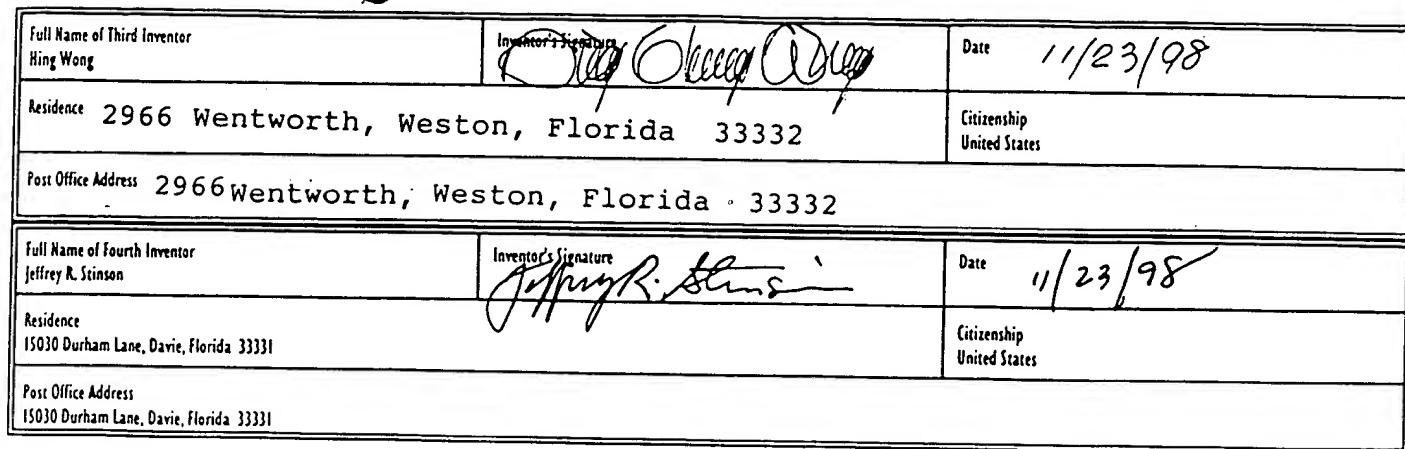 Full Name of Third Inventor
Hing Wong
Inventor's Signature
Date 11/23/98
Residence 2966 Wentworth, Weston, Florida 33332
Citizenship
United States
Post Office Address 2966 Wentworth, Weston, Florida 33332
Full Name of Fourth Inventor
Jeffrey R. Stinson
Inventor's Signature
Jeffrey R. Stinson
Date 11/23/98
Residence
15030 Durham Lane, Davie, Florida 33331
Citizenship
United States
Post Office Address
15030 Durham Lane, Davie, Florida 33331